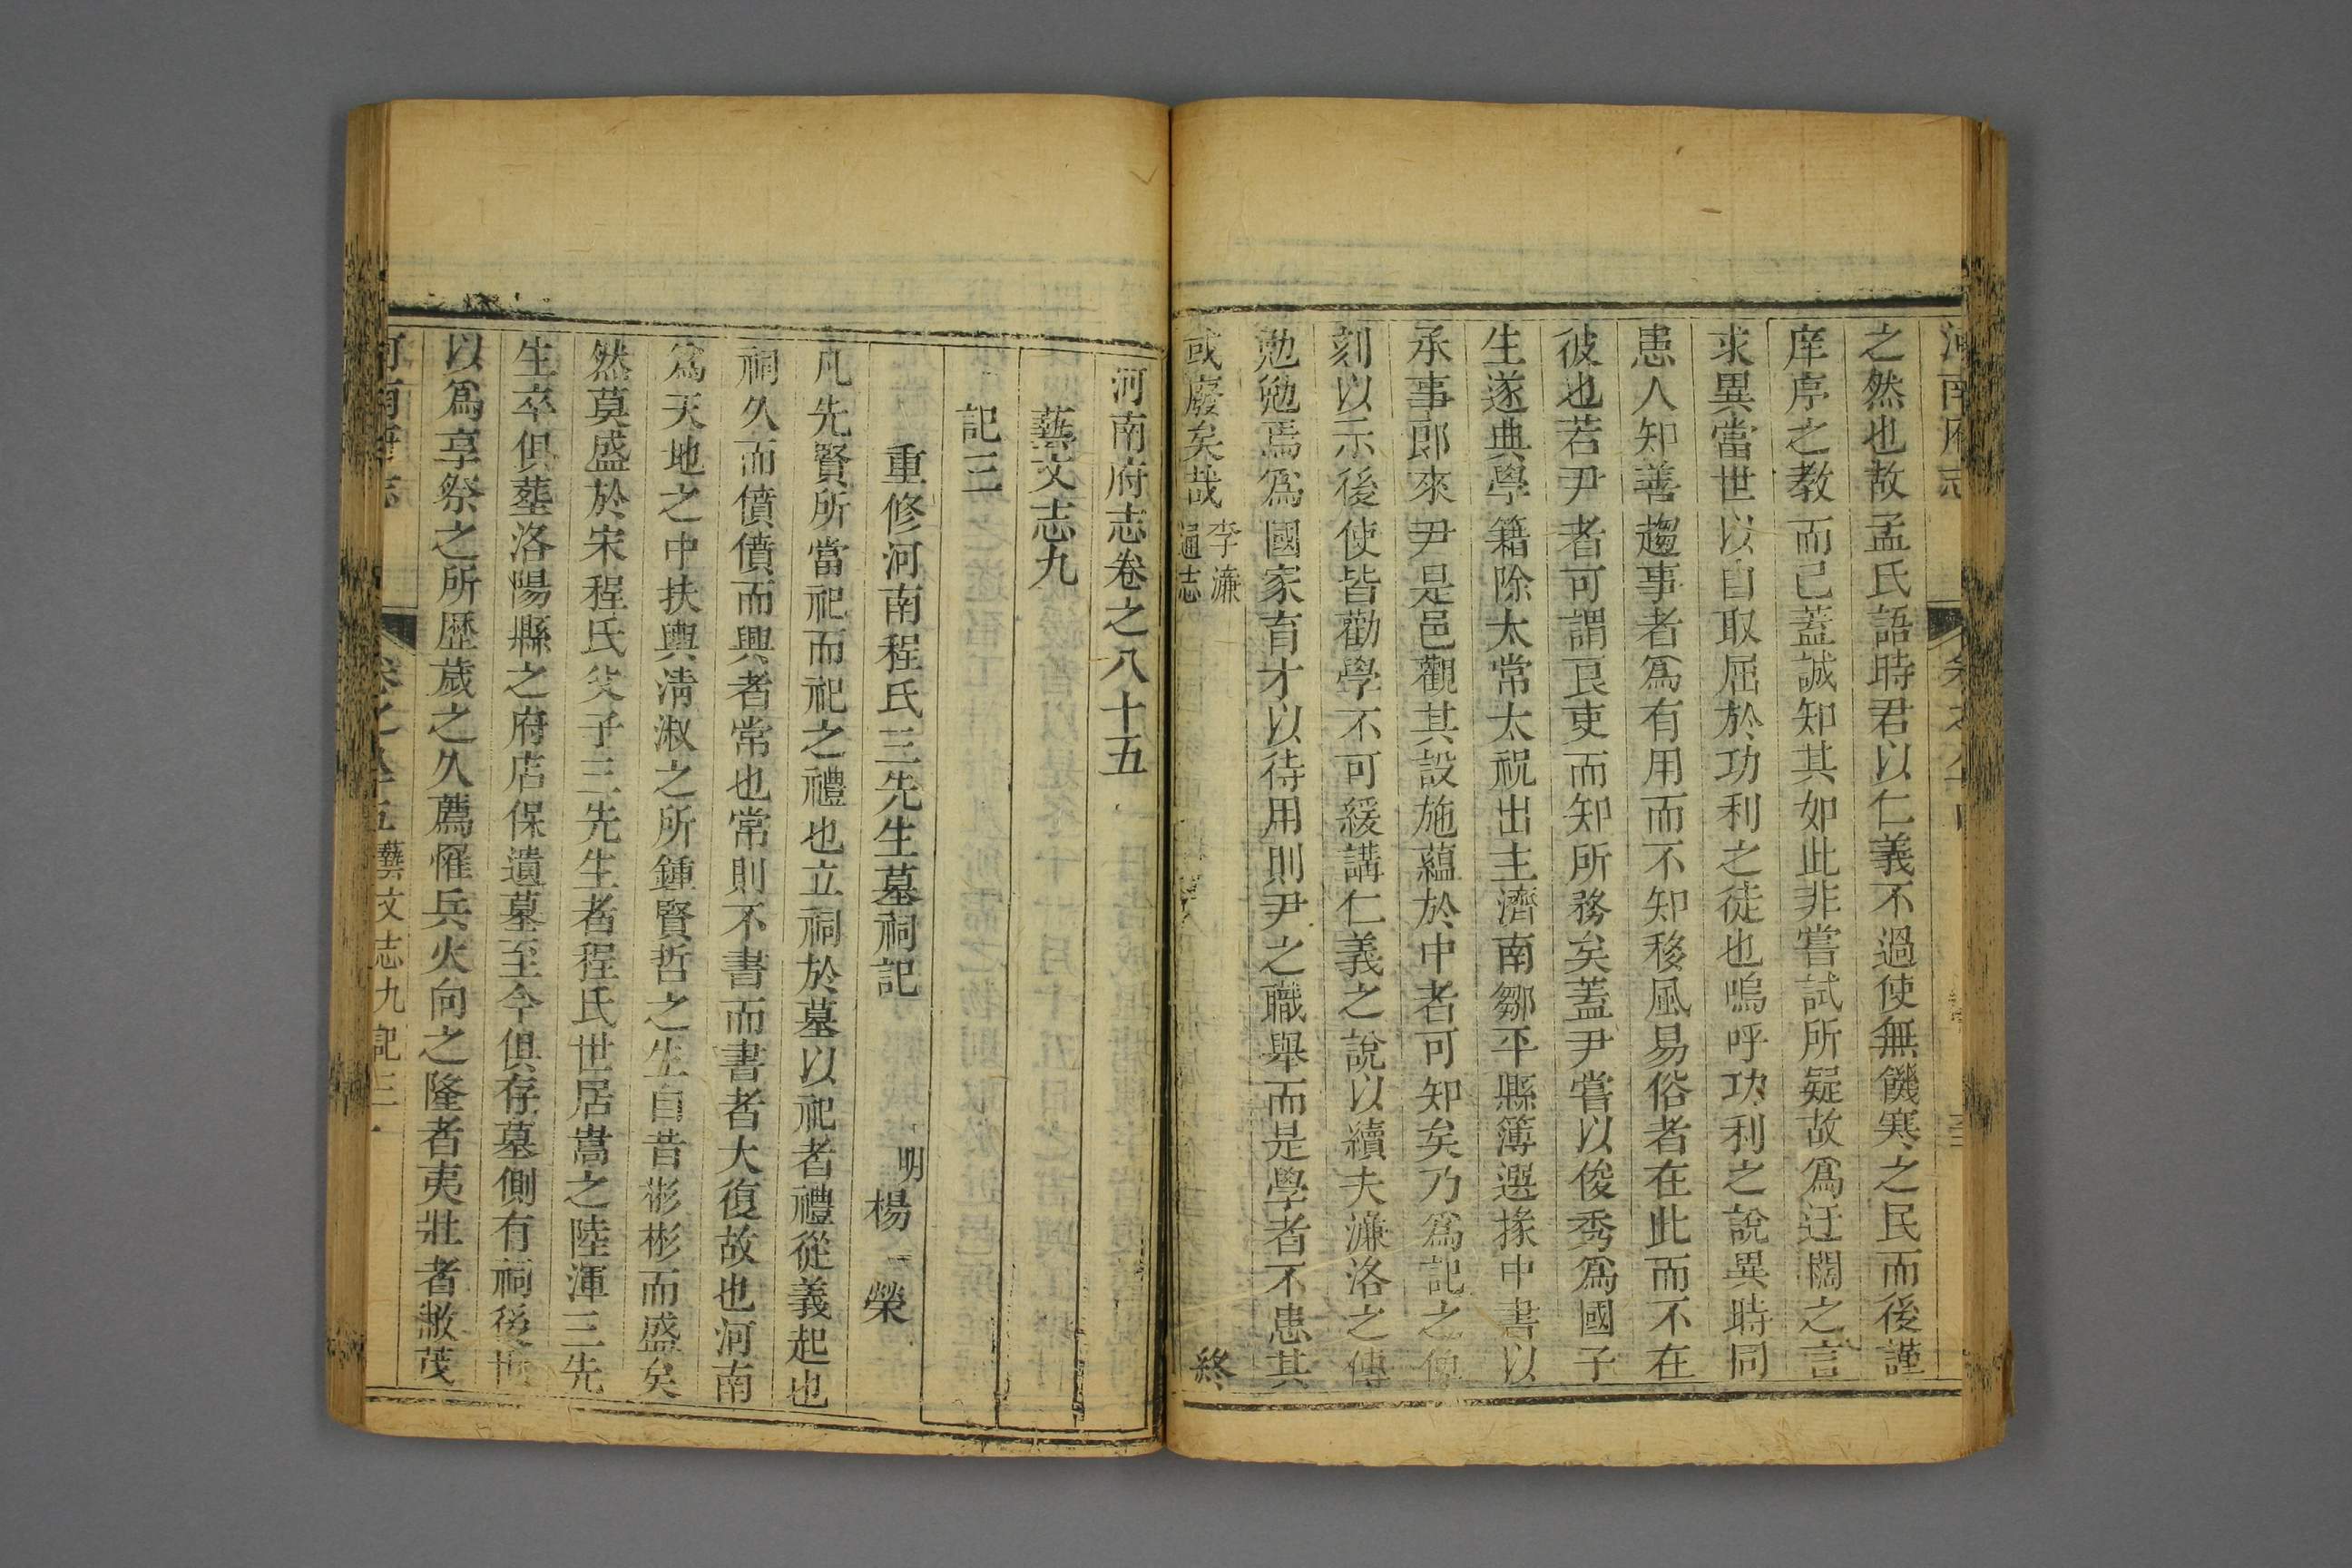 河南府志
之然也故孟氏語時君以仁義不過使無饑寒之民而後謹
庠序之教而已蓋誠知其如此非嘗試所疑故爲迂闊之言
求異當世以自取屈於功利之徒也嗚呼功利之說異時同
患人知善趨事者爲有用而不知移風易俗者在此而不在
彼也若尹者可謂良吏而知所務矣蓋尹嘗以俊秀爲國子
生遂典學籍除太常太祝出主濟南鄒平縣簿選掾中書以
承事郎來尹是邑觀其設施蘊於中者可知矣乃爲記之使
刻以示後使皆勸學不可緩講仁義之說以續夫濂洛之傳
勉勉焉爲國家育才以待用則尹之職舉而是學者不患其
或廢矣哉 李濂
通志
終
河南府志卷之八十五
藝文志九
記三
重修河南程氏三先生墓祠記
明 楊榮
凡先賢所當祀而祀之禮也立祠於墓以祀者禮從義起也
祠久而僨僨而興者常也常則不書而書者大復故也河南
爲天地之中扶輿淸淑之所鍾賢哲之生自昔彬彬而盛矣
然莫盛於宋程氏父子三先生者程氏世居嵩之陸渾三先
生卒俱塟洛陽縣之府店保遺墓至今俱存墓側有祠後世
以爲享祭之所歷歲之久薦罹兵火向之隆者夷壯者敝茂
河南府志
卷之八十五 藝文志九 記三 一